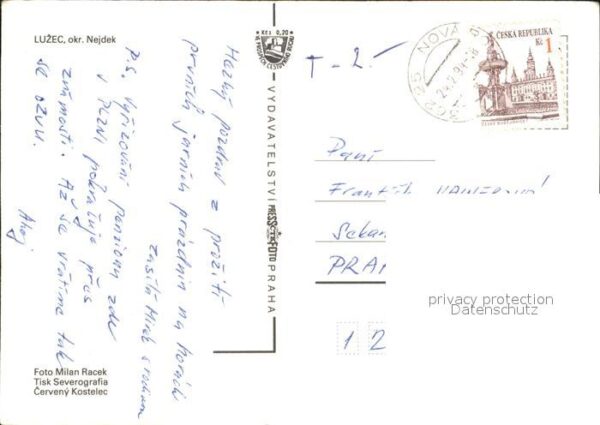 LUŽEC, okr. Nejdek
Kčs 0,20
VE PROSPĚCH CESTOVNÍHO RUCHU
Hezký pozdrav z prožití
prvních jarních prázdnin na horách
zasílá Mirek s rodinou
P.S. Vyřizování penzionu zde
v Plzni pokračuje přes
známosti. Až se vrátíme tak
se ozvu.
Ahoj
Foto Milan Racek
Tisk Severografia
Červený Kostelec
VYDAVATELSTVÍ PRESSFOTO PRAHA
T - 2.-
362 25 NOVÁ
ČESKÁ REPUBLIKA
Kč 1
Paní
František
PRA
1 2
privacy protection
Datenschutz